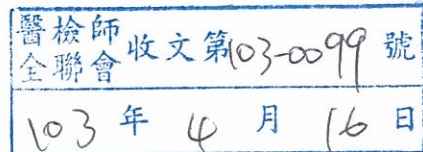 醫檢師
全聯會 收文第103-0099號
103年4月16日